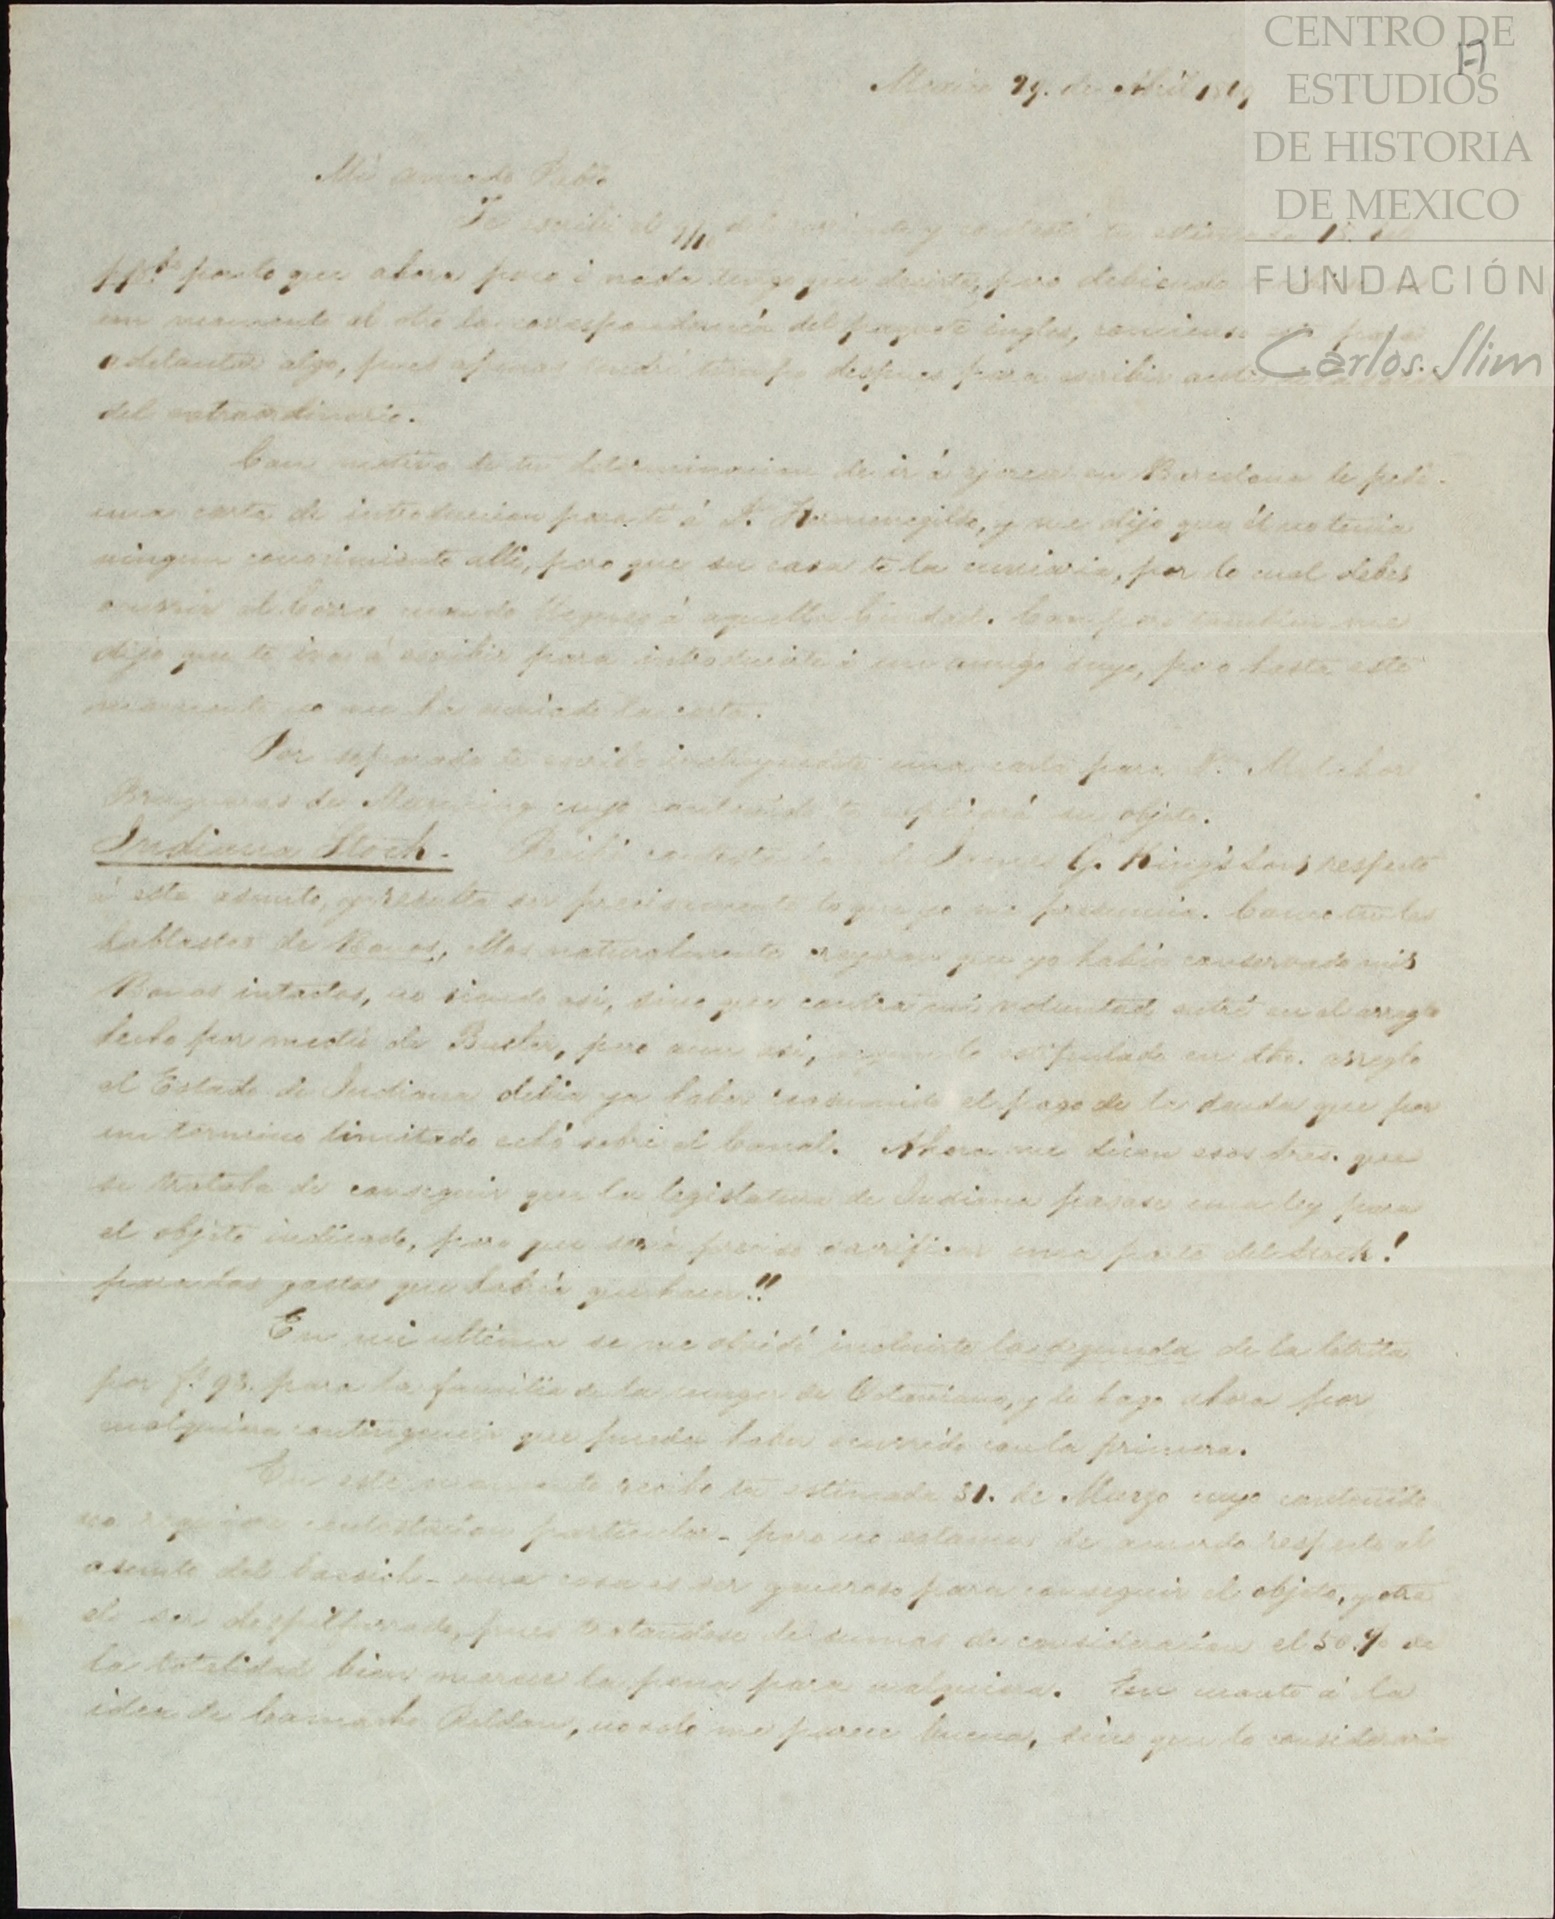 CENTRO DE
ESTUDIOS
DE HISTORIA
DE MEXICO
FUNDACIÓN
Carlos Slim
17
Mexico 29. de Abril 18
Mi amado Pablo
Te escribi el del corriente y contesté tu estimada
ppdo. por lo que ahora poco ó nada tengo que decirte, pero debiendo
un momento al otro la correspondencia del paquete ingles, comienzo
adelantar algo, pues apenas tendré tiempo despues para escribir antes
del extraordinario.
Con motivo de tu determinacion de ir á ejercer en Barcelona le pedi
una carta de introduccion para ti á Dn. Hermenegildo, y me dijo que él no tenia
ningun conocimiento alli, pero que su casa te la enviaria, por lo cual debes
ocurrir al Correo cuando llegues á aquella Ciudad. Campero tambien me
dijo que te iva á escribir para introducirte á un amigo suyo, pero hasta este
momento no me ha enviado la carta.
Por separado te escribo incluyendote una carta para Dn. Melchor
Brugueras de cuyo contenido te esplicará su objeto.
Indiana Stock. Recibi contestacion de James G. King's Sons respecto
á este asunto, y resulta ser precisamente lo que yo me presumia. Como tu les
hablastes de Bonos, ellos naturalmente creyeron que yo habia conservado mis
Bonos intactos, no siendo asi, sino que contra mi voluntad entré en el arreglo
hecho por medio de Butler, pero aun asi, segun lo estipulado en dho. arreglo
el Estado de Indiana debia ya haber reasumido el pago de la deuda que por
un termino limitado echó sobre el Canal. Ahora me dicen esos Sres. que
se trataba de conseguir que la legislatura de Indiana pasase una ley para
el objeto indicado, pero que será preciso sacrificar una parte del stock!
para los gastos que habria que hacer!!
En mi ultima se me olvidó incluirte la segunda de la letrita
por f. 93. para la familia de la muger de y lo hago ahora por
cualquiera contingencia que pueda haber ocurrido con la primera.
En este momento recibo tu estimada 31. de Marzo cuyo contenido
no requiere contestacion particular - pero no estamos de acuerdo respecto al
asunto del - una cosa es ser generoso para conseguir el objeto, y otra
el ser despilfarrado, pues tratandose de sumas de consideracion el 50.% de
la totalidad bien merece la pena para cualquiera. En cuanto á la
idea de Camacho Roldan, no solo me parece buena, sino que lo consideraria